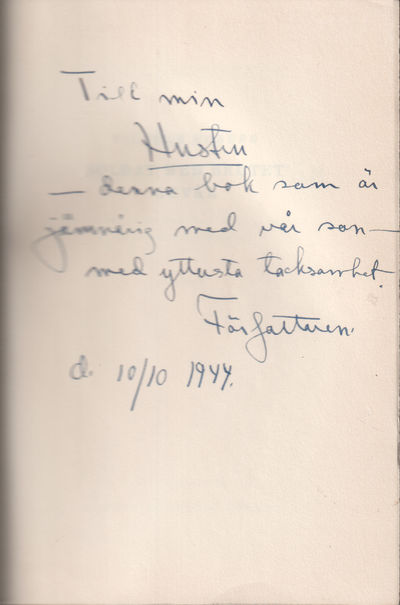 Till min
Hustru
— denna bok som är
jämnårig med vår son —
med yttersta tacksamhet.
Författaren.
d. 10/10 1944.